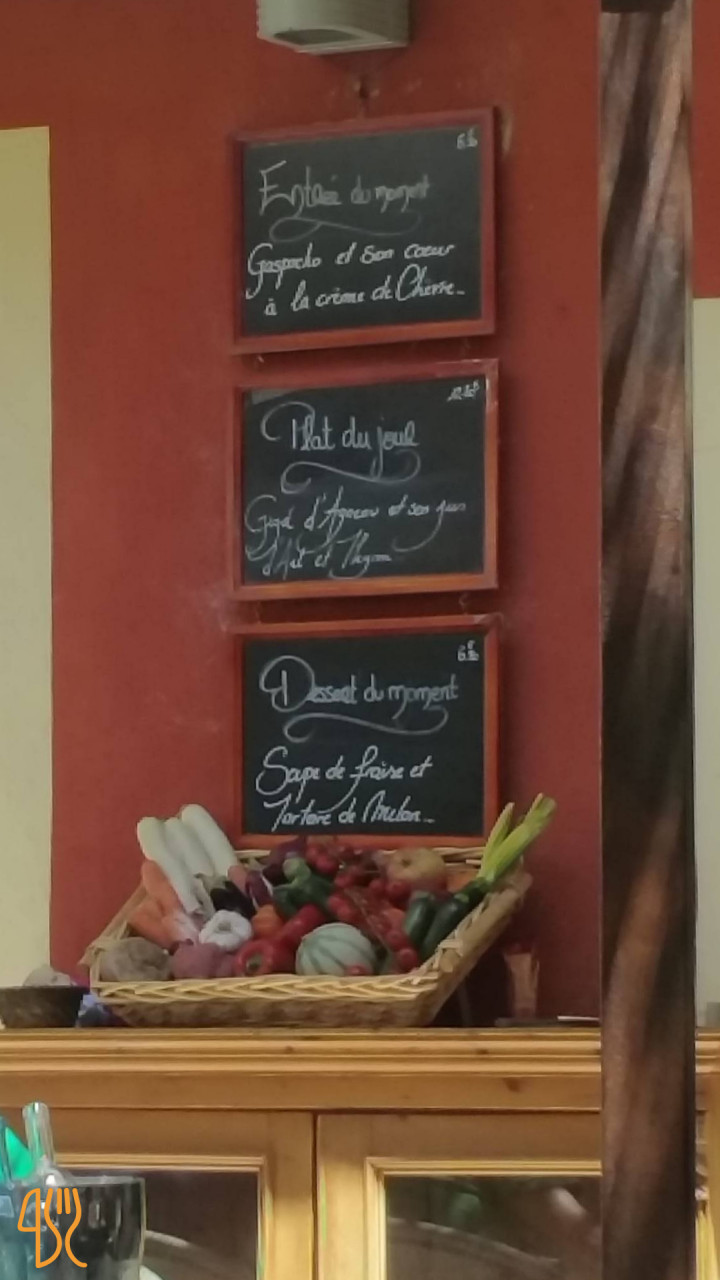 Entrée du moment
Gaspacho et son coeur
à la crème de Chèvre...
Plat du jour
Gigot d'Agneau et son jus
d'Ail et Thym...
Dessert du moment
Soupe de fraise et
Tartare de Melon...